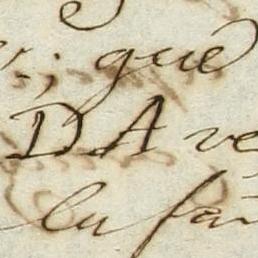 ; que
DA ve
la fa